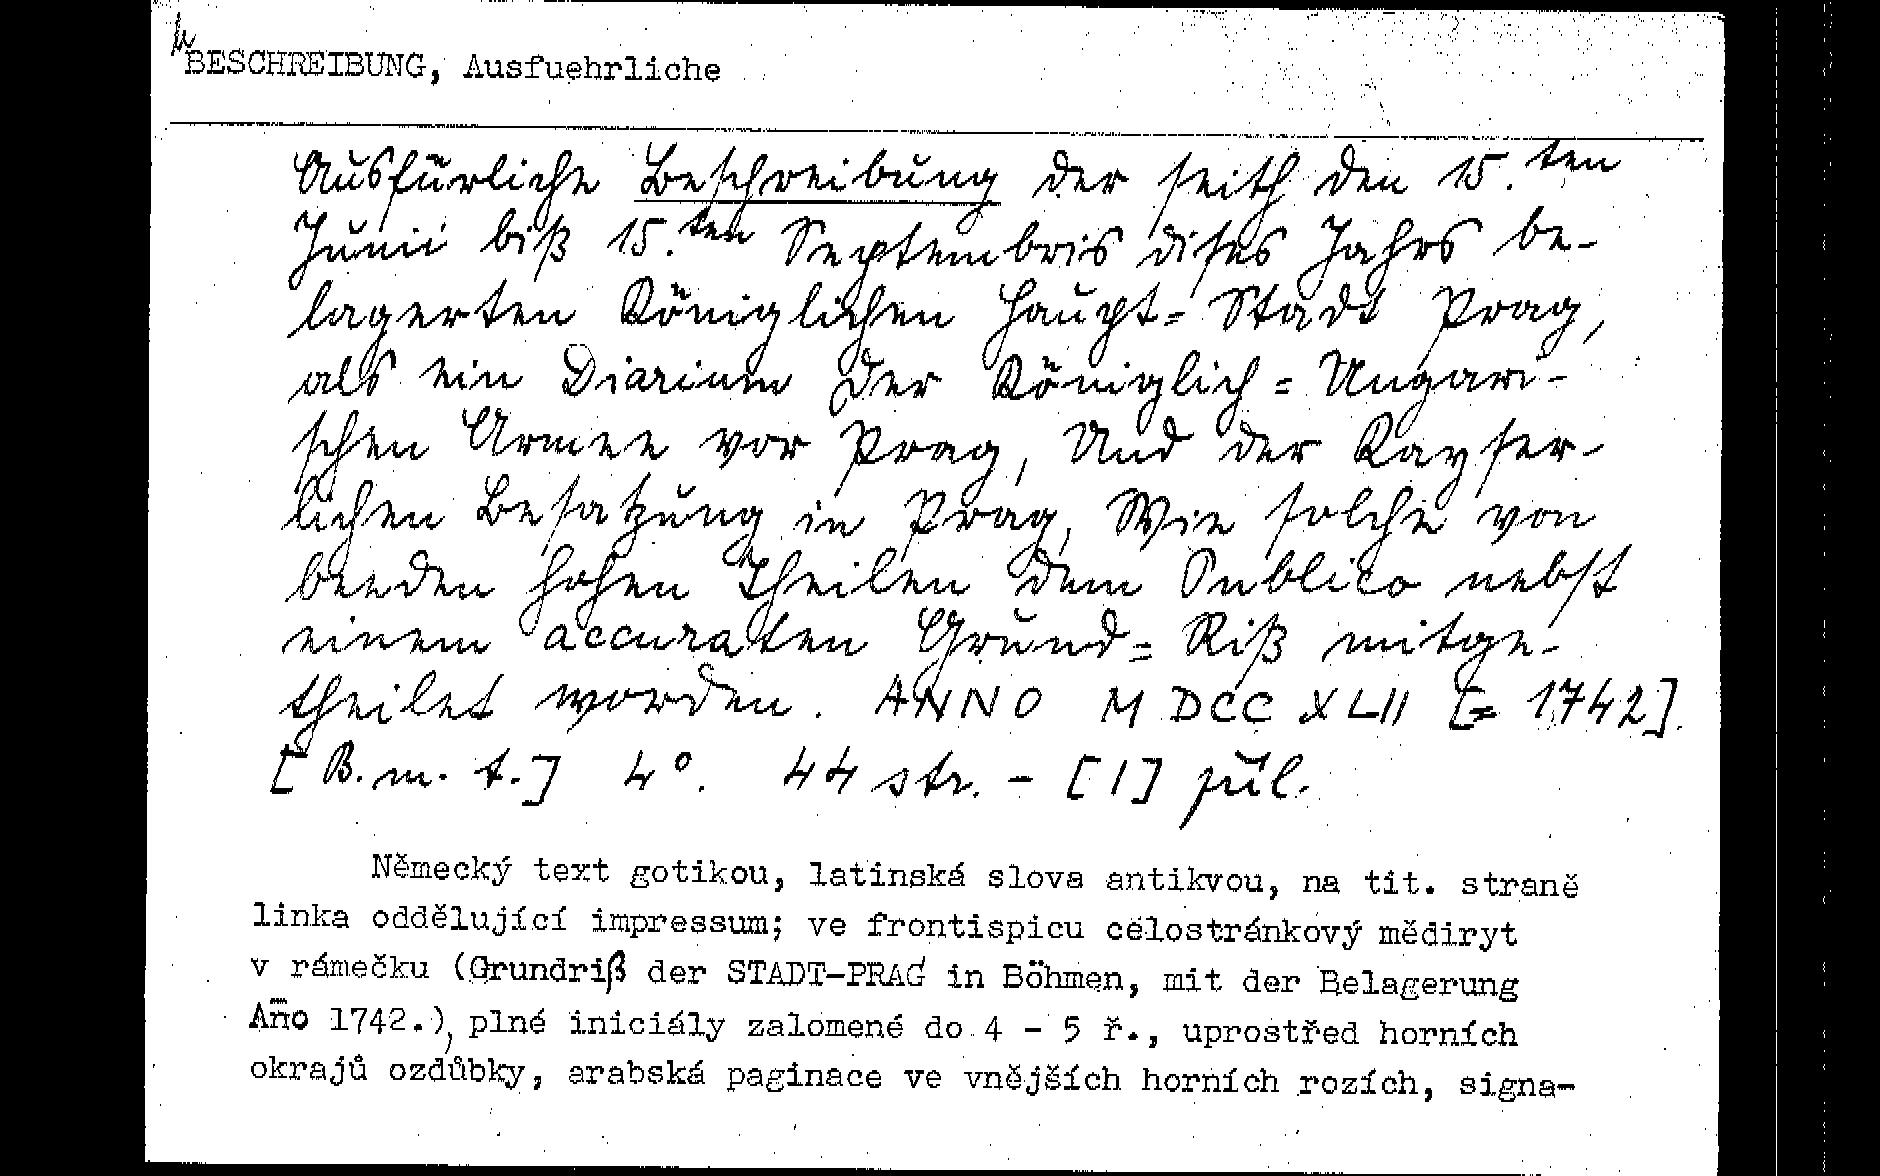 BESCHREIBUNG, Ausfuehrliche
Ausfürliche Beschreibung der seith den 15.ten
Junii biß 15.ten Septembris dises Jahrs be-
lagerten Königlichen Haupt= Stadt Prag,
als ein Diarium der Königlich= Ungari-
schen Armee vor Prag, Und der Kayser-
lichen Besatzung in Prag, Wie solche von
beeden hohen Theilen dem Publico nebst
einem accuraten Grund= Riß mitge-
theilet worden. ANNO MDCCXLII [= 1742].
[B.m.t.] 4°. 44 str. - [1] příl.
Německý text gotikou, latinská slova antikvou, na tit. straně
linka oddělující impressum; ve frontispicu celostránkový mědiryt
v rámečku (Grundriß der STADT-PRAG in Böhmen, mit der Belagerung
Año 1742.), plné iniciály zalomené do 4 - 5 ř., uprostřed horních
okrajů ozdůbky, arabská paginace ve vnějších horních rozích, signa-